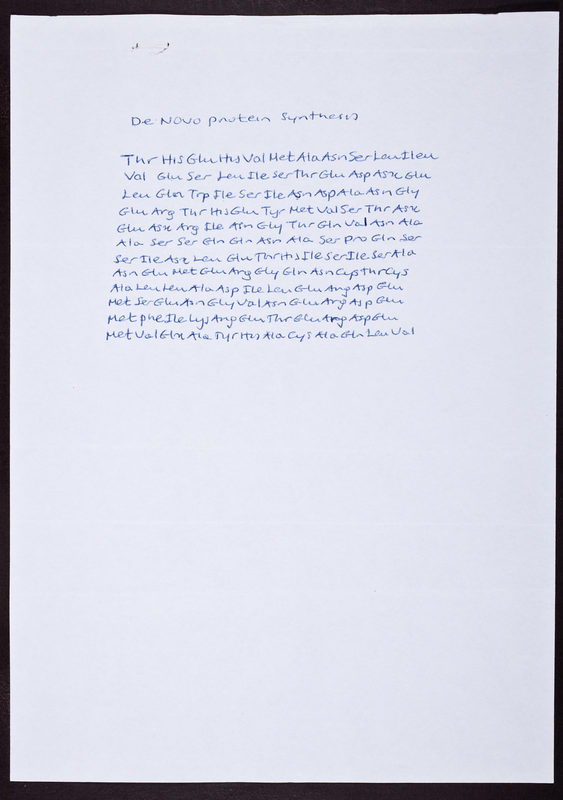 De Novo protein synthesis
Thr His Glu His Val Met Ala Asn Ser Leu Ileu
Val Glu Ser Leu Ile Ser Thr Glu Asp Asx Glu
Leu Glx Trp Ile Ser Ile Asn Asp Ala Asn Gly
Glu Arg Thr His Glu Tyr Met Val Ser Thr Asx
Glu Asx Arg Ile Asn Gly Thr Gln Val Asn Ala
Ala Ser Ser Gln Gln Asn Ala Ser Pro Gln Ser
Ser Ile Asx Leu Glu Thr His Ile Ser Ile Ser Ala
Asn Glu Met Glu Arg Gly Gln Asn Cys Thr Cys
Ala Leu Leu Ala Asp Ile Leu Glu Arg Asp Glu
Met Ser Glu Asn Gly Val Asn Glu Arg Asp Glu
Met Phe Ile Lys Arg Glu Thr Glu Arg Asp Glu
Met Val Glx Ala Tyr His Ala Cys Ala Gln Leu Val